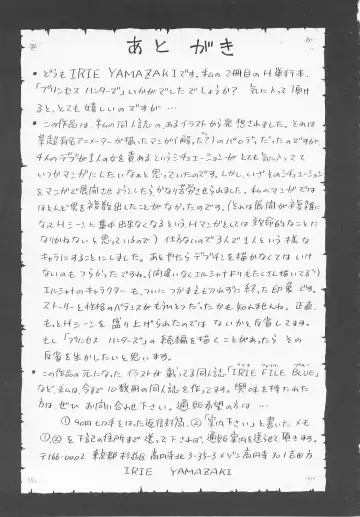 あとがき
• どうも IRIE YAMAZAKIです。私の2冊目のH単行本、
「プリンセス ハンターズ」いかがでしたでしょうか? 気に入って頂け
ると、とても嬉しいのですが…
• この作品は、私の同人誌の、あるイラストから発想されました。それは
某超有名アニメーターが描いたマンガ(解った?)のパロディだったのですが、
4人のデブが1人の女を責めるというシチュエーションがとても気に入ってて
いつかマンガにしたいなぁと思っていたのです。しかし、いざそのシチュエーション
をマンガで展開させようとしたらかなり苦労させられました。私のマンガでは
ほとんど男を複数出したことがなかったのです。(それは展開が複雑に
なってHシーンに集中出来なくなるというHマンガとしては致命的なことに
なりかねないと思っているので) 仕方ないので3人で1人という様な
キャラにすることにしました。あとやたらデブチンを描かなくてはいけ
ないのもつらかったですね。(間違いなくエルシャナよりもたくさん描いてる!)
エルシャナのキャラクターも、ついにつかまえられずに終った印象です。
ストーリーと性格のバランスがもうひとつだったかも知れませんね。正直、
もっとHシーンを盛り上げられたのではないかと反省してます。
もし「プリンセス ハンターズ」の続編を描くことがあったらその
反省を生かしたいと思います。
• この作品の元になったイラストが載ってる同人誌「IRIE FILE BLUE」
など、私は、今まで10数冊の同人誌を作ってます。興味を持たれた
方はぜひお問い合せ下さい。通販希望の方は…
① 90円切手をはった返信封筒、②「案内下さい」と書いたメモ
①②を下記の住所まで送って下されば、通販案内を送らせて頂きます。
〒166-0002 東京都杉並区高円寺北3-35-3メゾン高円寺301 吉田方
IRIE YAMAZAKI